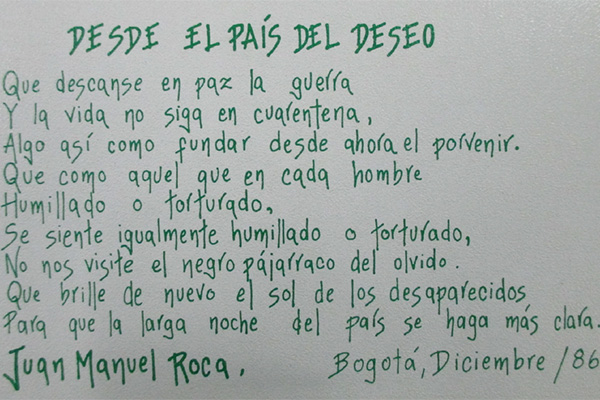 DESDE EL PAÍS DEL DESEO
Que descanse en paz la guerra
Y la vida no siga en cuarentena,
Algo así como fundar desde ahora el porvenir.
Que como aquel que en cada hombre
Humillado o torturado,
Se siente igualmente humillado o torturado,
No nos visite el negro pájarraco del olvido.
Que brille de nuevo el sol de los desaparecidos
Para que la larga noche del país se haga más clara.
Juan Manuel Roca. Bogotá, Diciembre /86